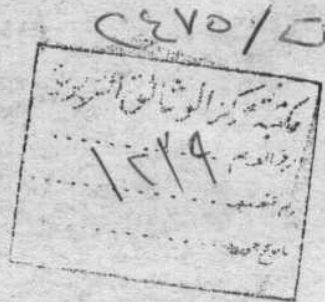 ٢٤٧٥/
مكتبة مركز الوثائق التربوية
الرقم العام ١٢٣٩
رقم التصنيف
تاريخ